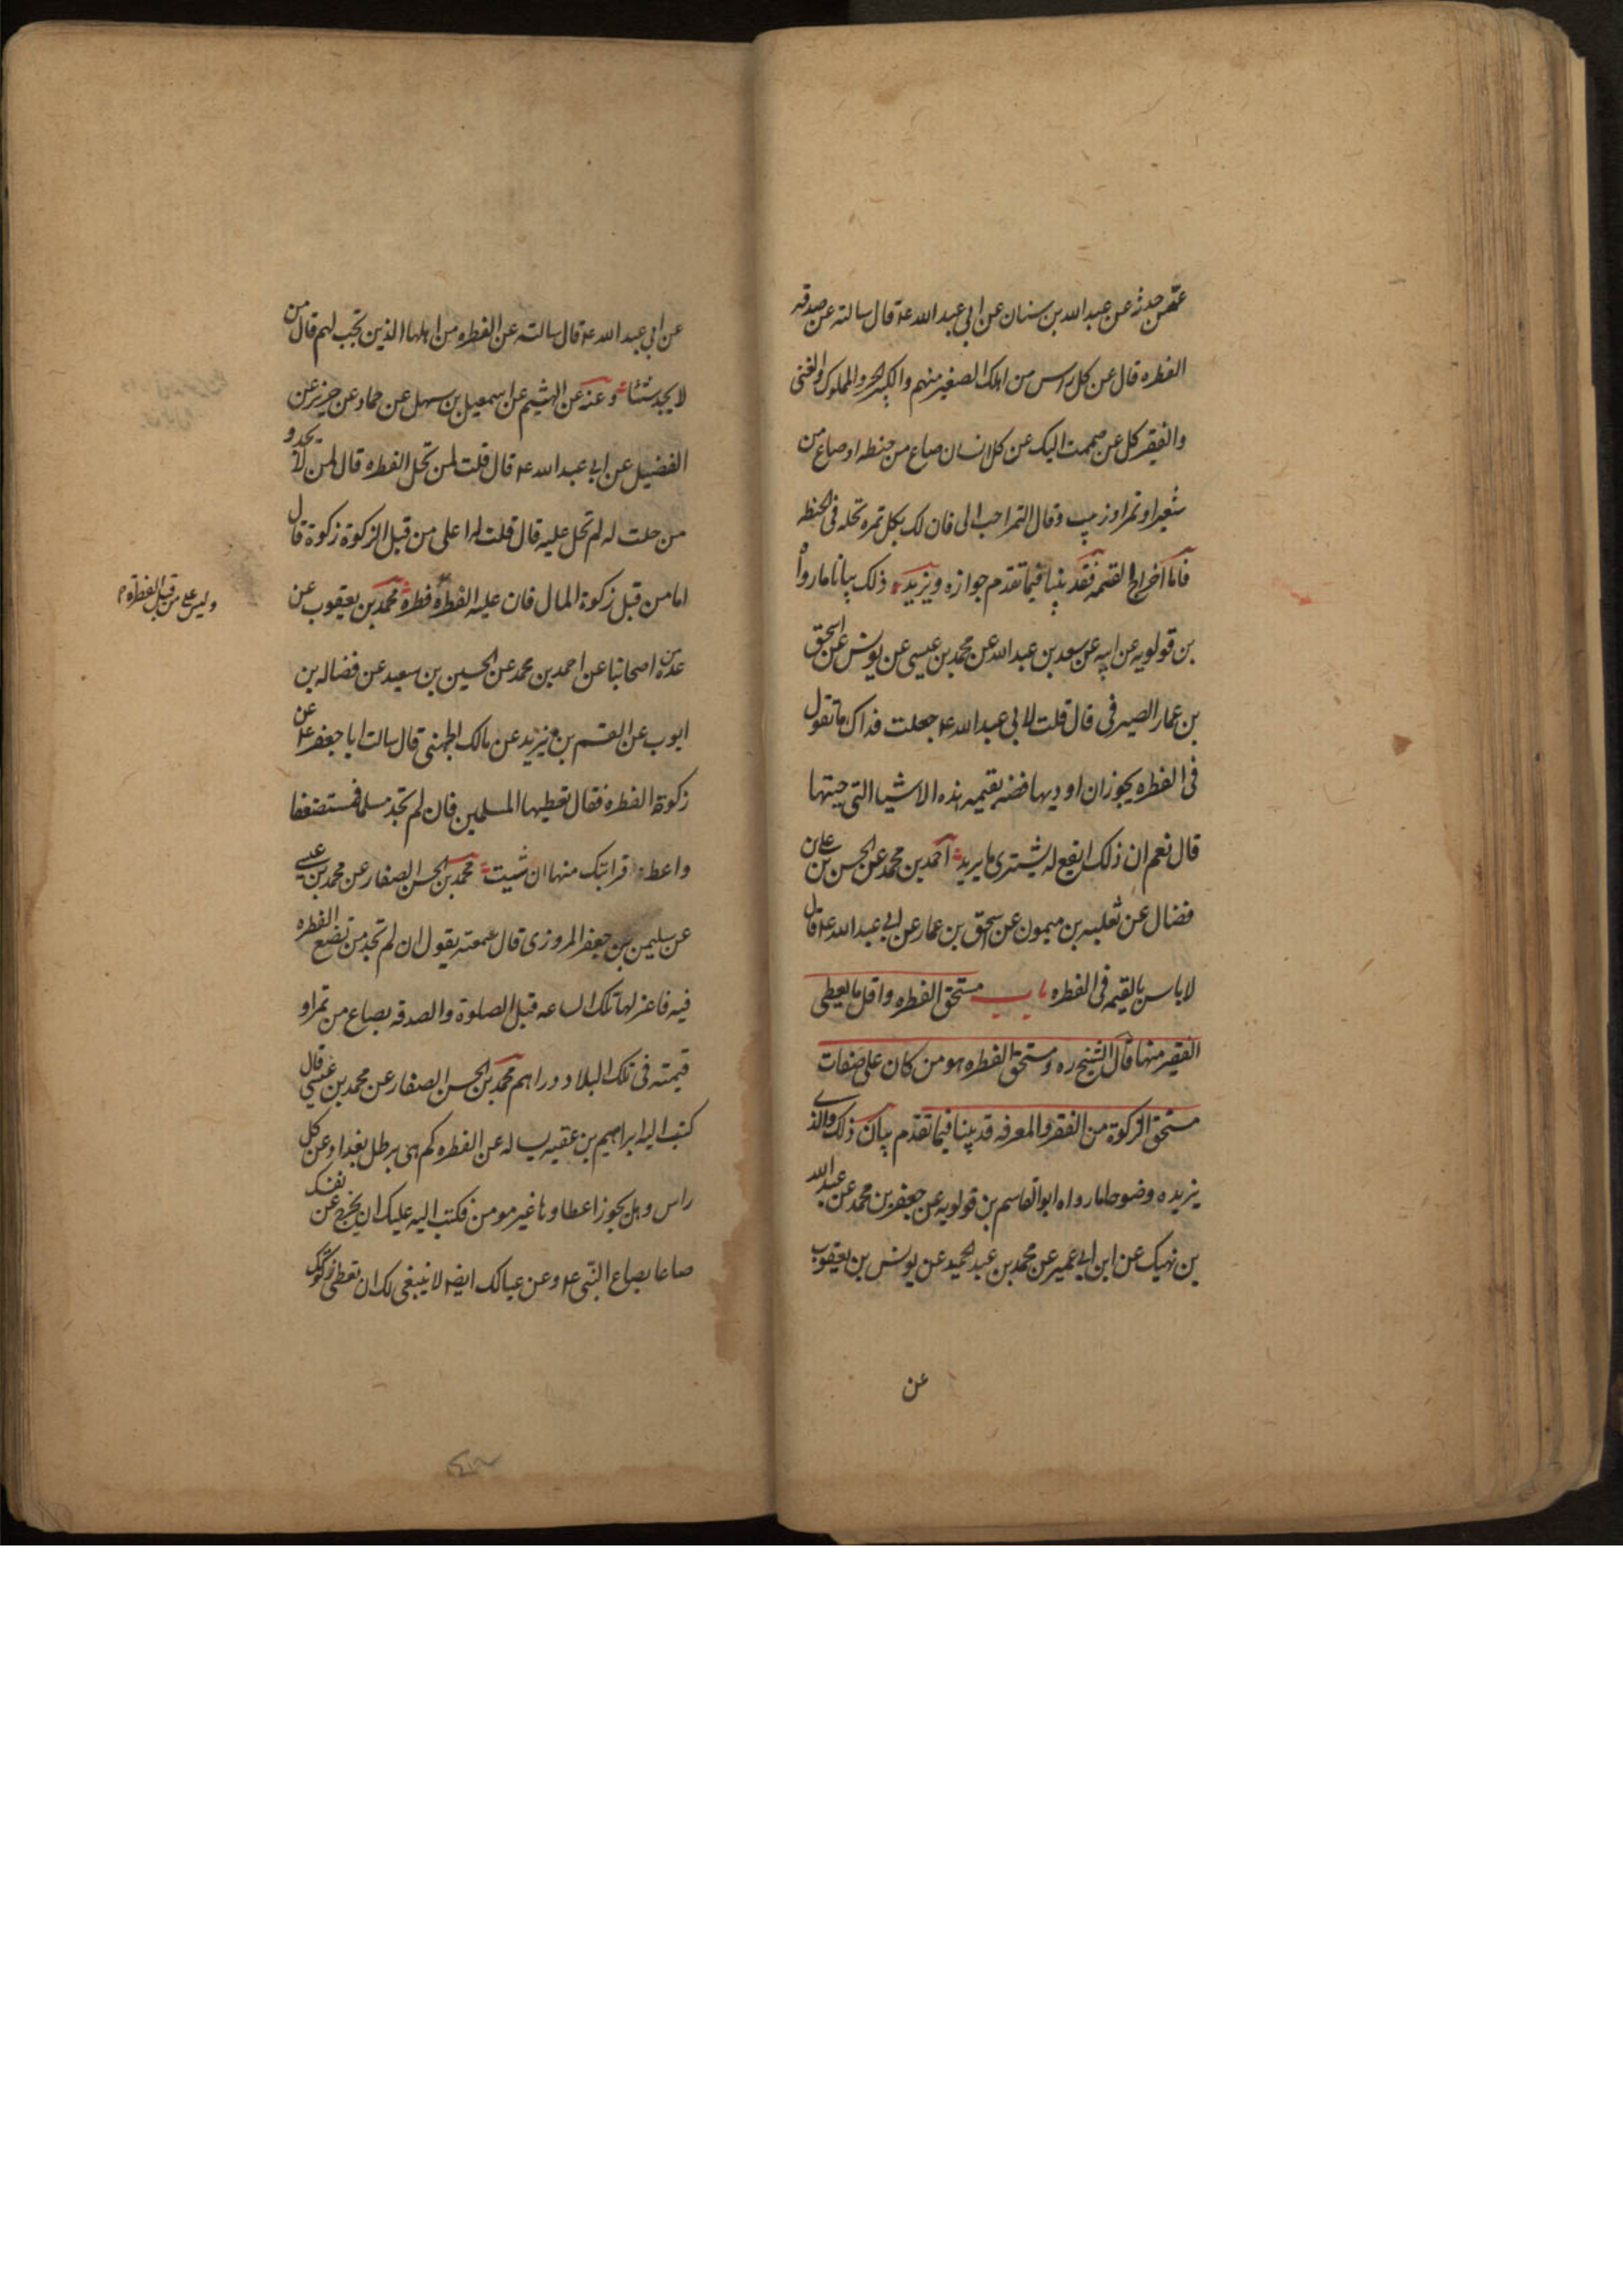 عمن حدثه عن عبد الله بن سنان عن ابي عبد الله ع قال سالته عن صدقه
الفطره قال عن كل راس من اهلك الصغير منهم والكبير والحر والمملوك والغنى
والفقير كل من ضممت اليك عن كل انسان صاع من حنطه او صاع من
شعير او تمر او زبيب وقال التمر احب الى فان لك بكل تمره نخله فى الجنه
فاما اخراج القيمه فقد بينا فيما تقدم جوازه ويزيد ذلك بيانا ما رواه
بن قولويه عن ابيه عن سعد بن عبد الله عن محمد بن عيسى عن يونس عن اسحق
بن عمار الصيرفى قال قلت لابي عبد الله ع جعلت فداك ما تقول
فى الفطره يجوز ان اوديها فضه بقيمه هذه الاشيا التى سميتها
قال نعم ان ذلك انفع له يشترى ما يريد احمد بن محمد عن الحسن بن على بن
فضال عن ثعلبه بن ميمون عن اسحق بن عمار عن ابي عبد الله ع قال
لا باس بالقيمه فى الفطره باب مستحق الفطره واقل ما يعطى
الفقير منها قال الشيخ ره ومستحق الفطره هو من كان على صفات
مستحق الزكوة من الفقر والمعرفه قد بينا فيما تقدم بيان ذلك والذى
يزيده وضوحا ما رواه ابو القاسم بن قولويه عن جعفر بن محمد عن عبد الله
بن نهيك عن ابن ابي عمير عن محمد بن عبد الحميد عن يونس بن يعقوب
عن
عن ابي عبد الله ع قال سالته عن الفطره من اهلها الذين تجب لهم قال من
لا يجد شيئا وعنه عن الهيثم عن اسمعيل بن سهل عن حماد عن حريز عن
الفضيل عن ابي عبد الله ع قال قلت لمن تحل الفطره قال لمن لا يجد و
من حلت له لم تحل عليه قال قلت له اعلى من قبل الزكوة زكوة قال
اما من قبل زكوة المال فان عليه الفطره فطره محمد بن يعقوب عن
وليس على من قبل الفطره
عدة من اصحابنا عن احمد بن محمد عن الحسين بن سعيد عن فضاله بن
ايوب عن القسم بن يزيد عن مالك الجهنى قال سالت ابا جعفر ع عن
زكوة الفطره فقال تعطيها المسلمين فان لم تجد مسلما فمستضعفا
واعط قرابتك منها ان شيت محمد بن الحسن الصفار عن محمد بن عيسى
عن سليمن بن جعفر المروزى قال سمعته يقول ان لم تجد من تضع الفطره
فيه فاعزلها تلك الساعه قبل الصلوة والصدقه بصاع من تمر او
قيمته فى تلك البلاد دراهم محمد بن الحسن الصفار عن محمد بن عيسى قال
كتب اليه ابراهيم بن عقبه يساله عن الفطره كم هى برطل بغداد عن كل
راس وهل يجوز اعطاوها غير مومن فكتب اليه عليك ان تخرج عن نفسك
صاعا بصاع النبى ع وعن عيالك ايضا لا ينبغى لك ان تعطى زكوتك